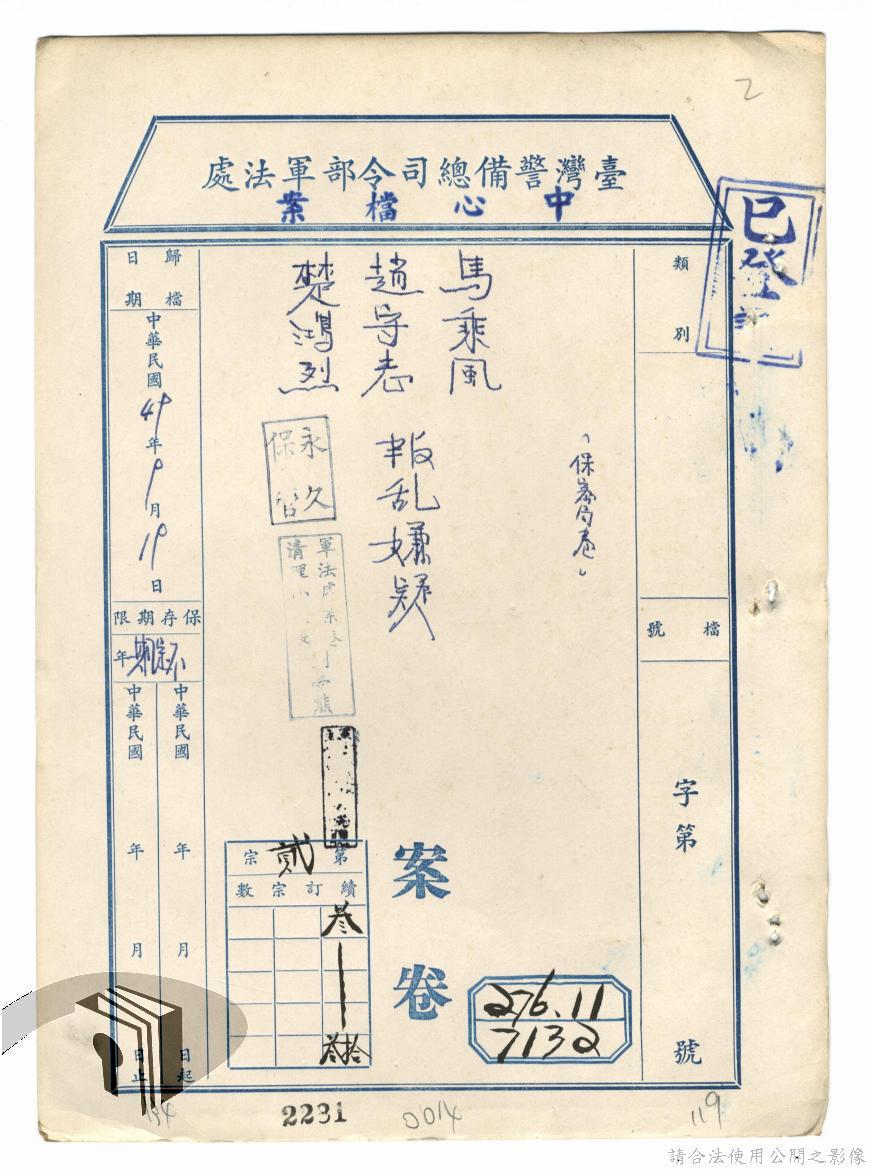 2
臺灣警備總司令部軍法處
中心檔案
已登
類別
檔號
字第
號
「保安司卷」
馬乘風
趙守志
楚鴻烈
叛乱嫌疑
案卷
永久
保管
軍法處
清理小
第貳宗
續訂宗數
叁
叁拾
276.11
7132
歸檔日期
中華民國49年9月19日
保存期限
年
中華民國 年 月 日起
中華民國 年 月 日止
2231
0014
119
請合法使用公開之影像